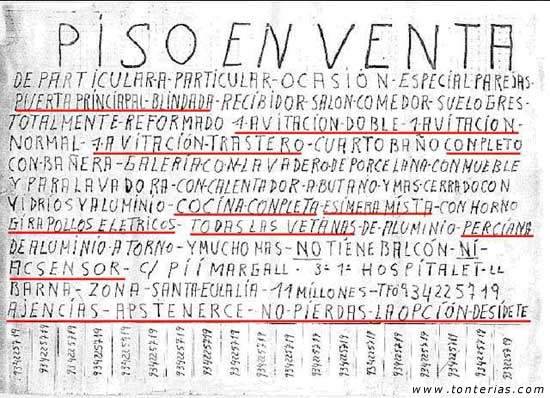 PISO EN VENTA
DE PARTICULAR-A-PARTICULAR-OCASIÓN-ESPECIAL PAREJAS
PUERTA PRINCIAPAL-BLINDADA-RECIBIDOR-SALON-COMEDOR-SUELO GRES-
TOTALMENTE-REFORMADO 1-AVITACION-DOBLE-1-AVITACION-
NORMAL-1-AVITACIÓN-TRASTERO-CUARTO BAÑO COMPLETO
CON BAÑERA-GALERÍA CON LAVADERO-DE PORCELANA-CON MUEBLE
Y PARA LAVADORA-CON CALENTADOR-A BUTANO-Y MAS-CERRADO CON
VIDRIOS Y ALUMINIO-COCINA-COMPLETA ESIMERA MISTA-CON HORNO
GIRAPOLLOS ELETRICOS-TODAS LAS VETANAS-DE ALUMINIO-PERCIANA
DE ALUMINIO A TORNO-Y MUCHO MAS-NO TIENE BALCÓN-NI-
ACSENSOR-C/PIÍ MARGALL-3º-1ª HOSPITALET-LL
BARNA-ZONA-SANTA EULALIA-11 MILLONES-TFº 934225719
AJENCÍAS-APSTENERCE-NO-PIERDAS-LA OPCIÓN-DESÍDETE
934225719 934225719 934225719 934225719 934225719 934225719 934225719 934225719 934225719 934225719 934225719 934225719 934225719 934225719
www.tonterias.com